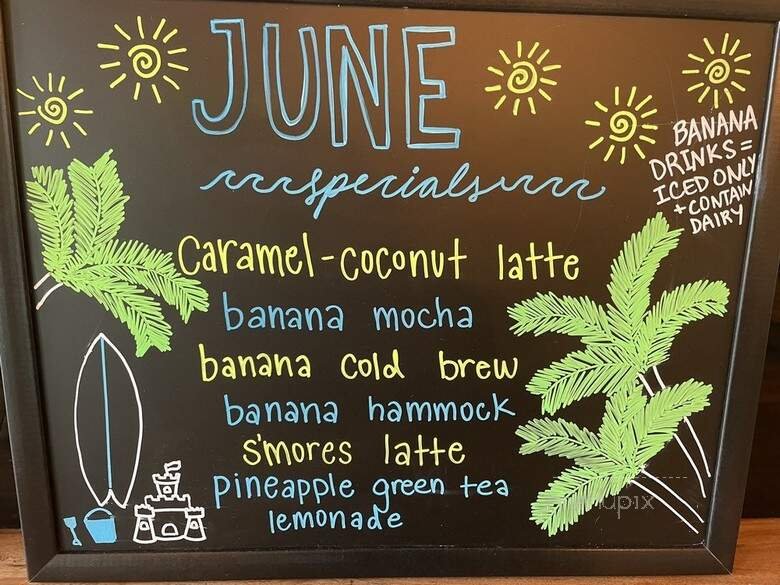 JUNE
specials
BANANA
DRINKS =
ICED ONLY
+ CONTAIN
DAIRY
caramel-coconut latte
banana mocha
banana cold brew
banana hammock
s'mores latte
pineapple green tea
lemonade